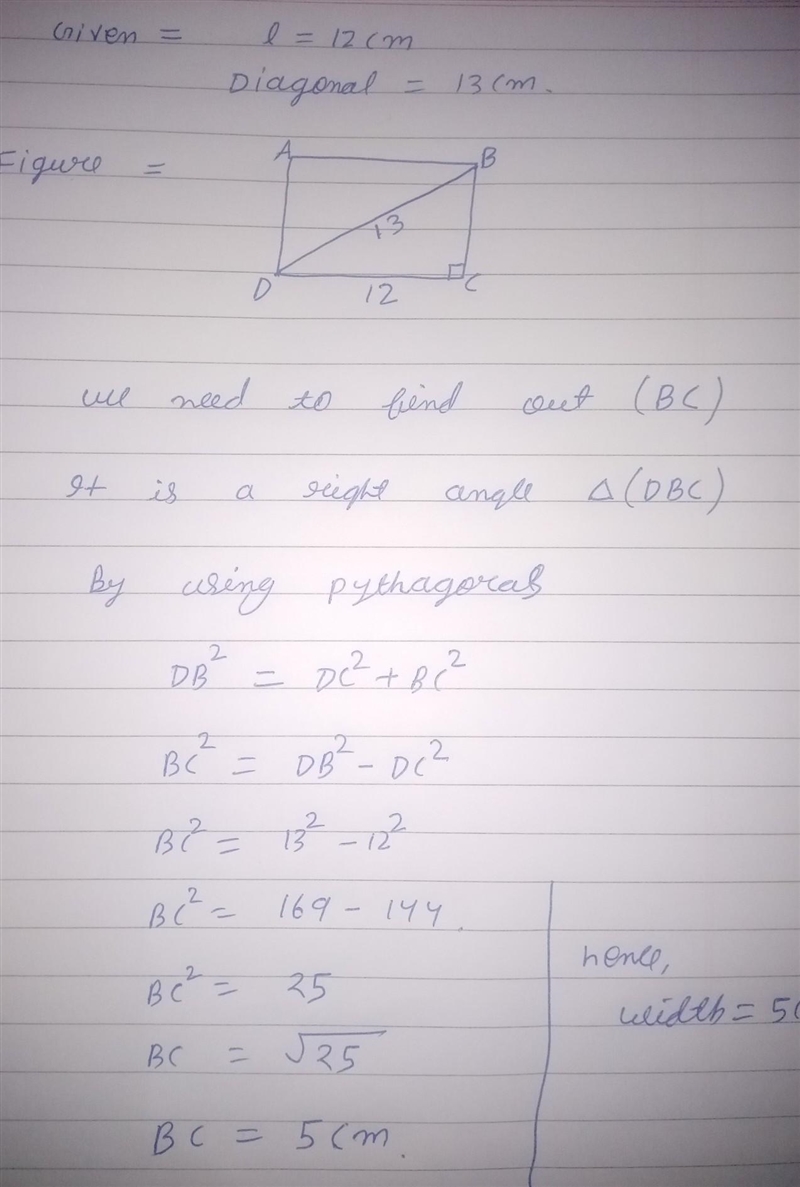 Given = l = 12 cm
Diagonal = 13 cm.
Figure =
A B
13
D 12 C
we need to find out (BC)
It is a right angle Δ(DBC)
By using pythagoras
DB² = DC² + BC²
BC² = DB² - DC²
BC² = 13² - 12²
BC² = 169 - 144.
BC² = 25
BC = √25
BC = 5 cm.
hence,
width = 5c